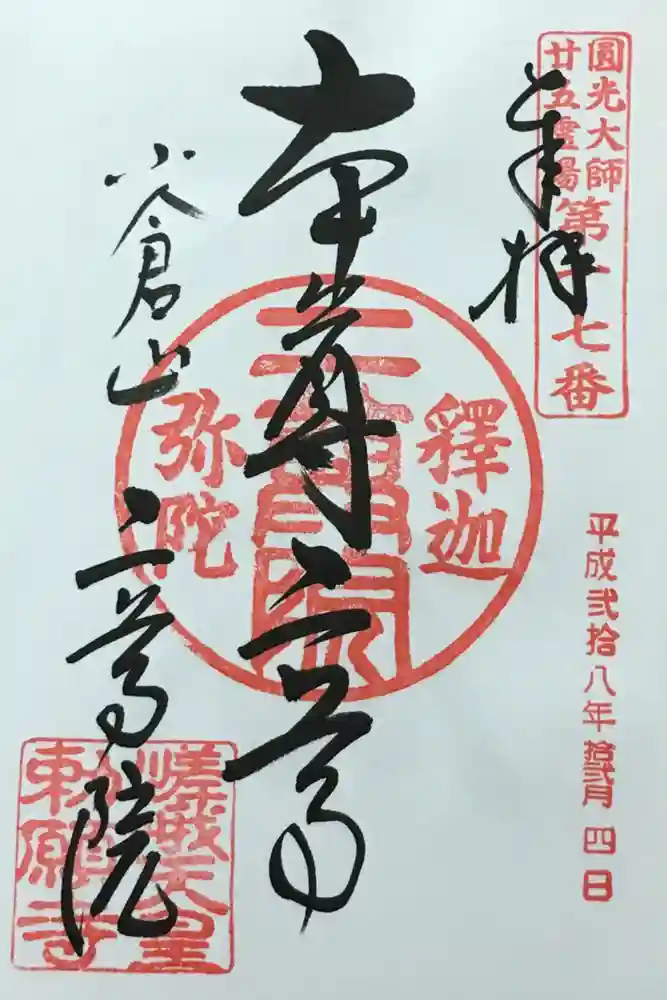 圓光大師
廿五霊場
第十七番
奉拝
平成弐拾八年拾弐月四日
本尊二尊
釋迦
二尊院
弥陀
小倉山
二尊院
嵯峨天皇
勅願寺